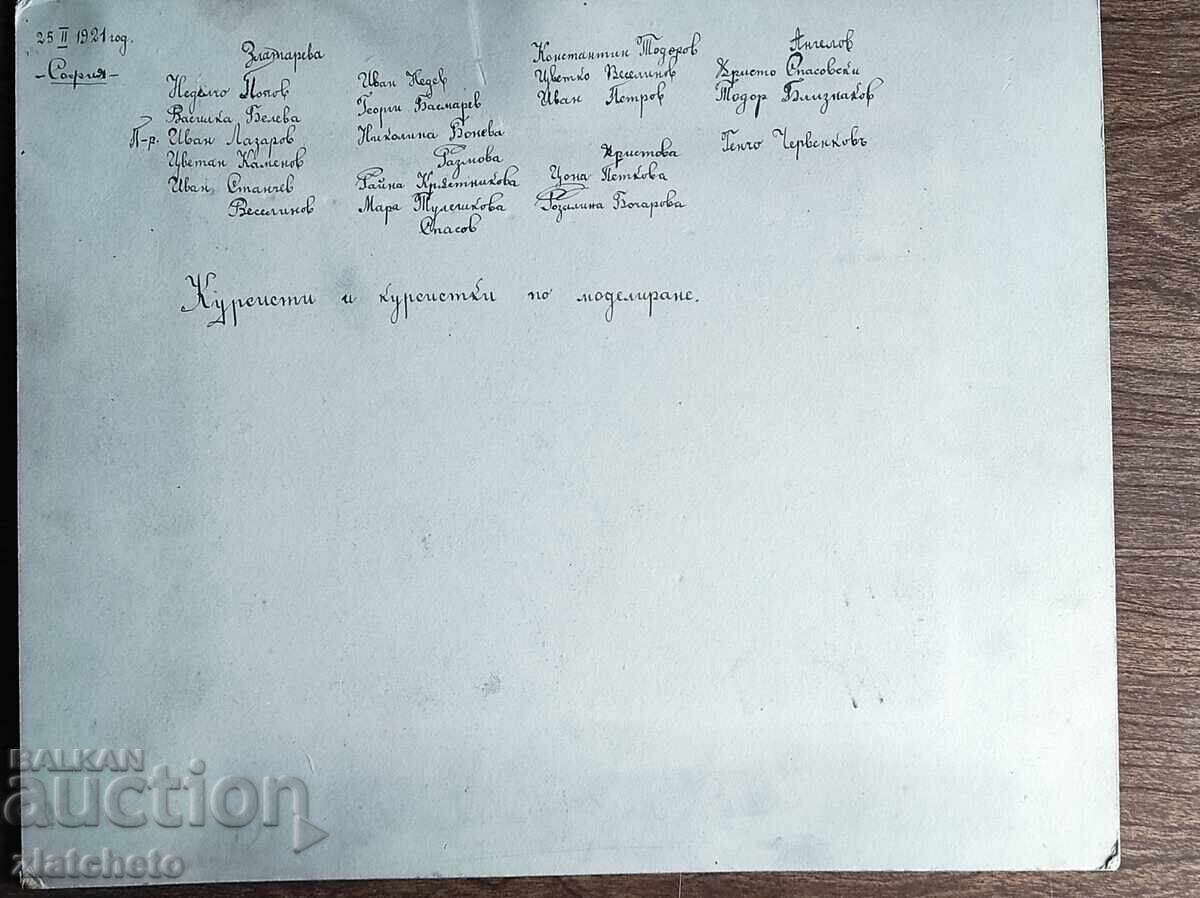 25 II 1921 год.
-София-
Златарева
Неделчо Попов
Василка Белева
П-р. Иван Лазаров
Цветан Каменов
Иван Станчев
Веселинов
Иван Недев
Георги Басмарев
Николина Бонева
Размова
Райна Кръстникова
Мара Тулешкова
Спасов
Константин Тодоров
Цветко Веселинов
Иван Петров
Христова
Цона Петкова
Розалина Бочарова
Ангелов
Христо Спасовски
Тодор Близнаков
Генчо Червенковъ
Курсисти и курсистки по моделиране.
BALKAN
auction
zlatcheto